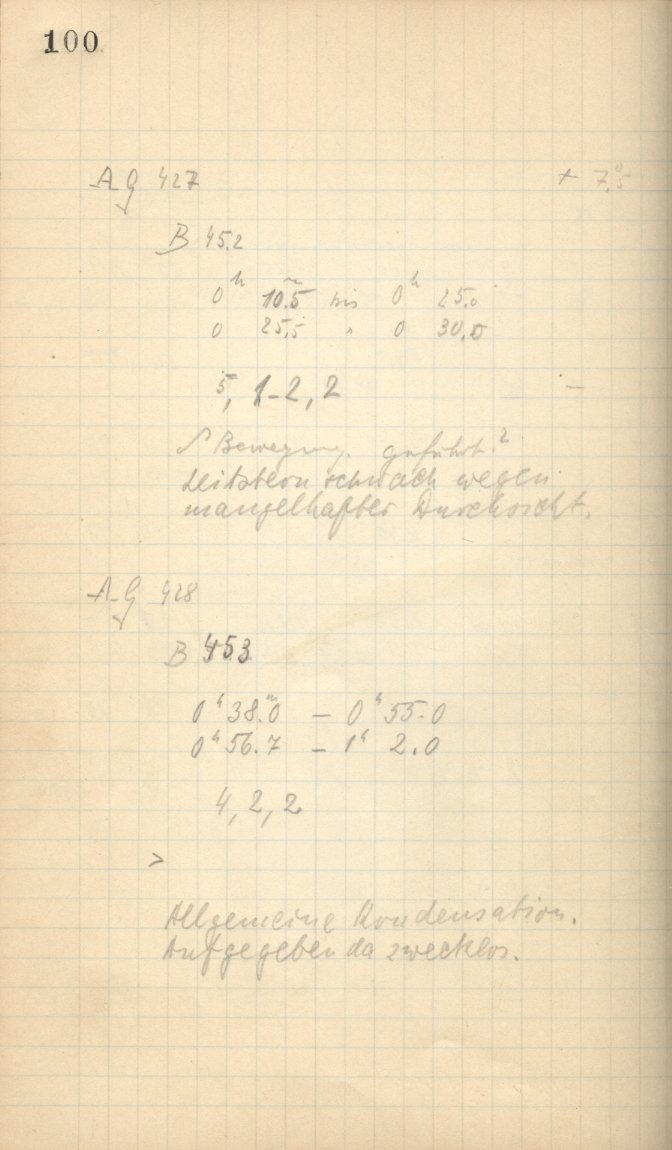 100
AG 427 + 7,5°
B 452
0ʰ 10.5ᵐ bis 0ʰ 25,0
0 25,5 " 0 30,0
5, 1-2, 2 —
Bewegung. geführt.
Leitstern schwach wegen
mangelhafter Durchsicht.
AG 428
B 453
0ʰ 38.0ᵐ – 0ʰ 55.0
0ʰ 56.7 – 1ʰ 2.0
4, 2, 2
>
Allgemeine Kondensation.
Aufgegeben da zwecklos.